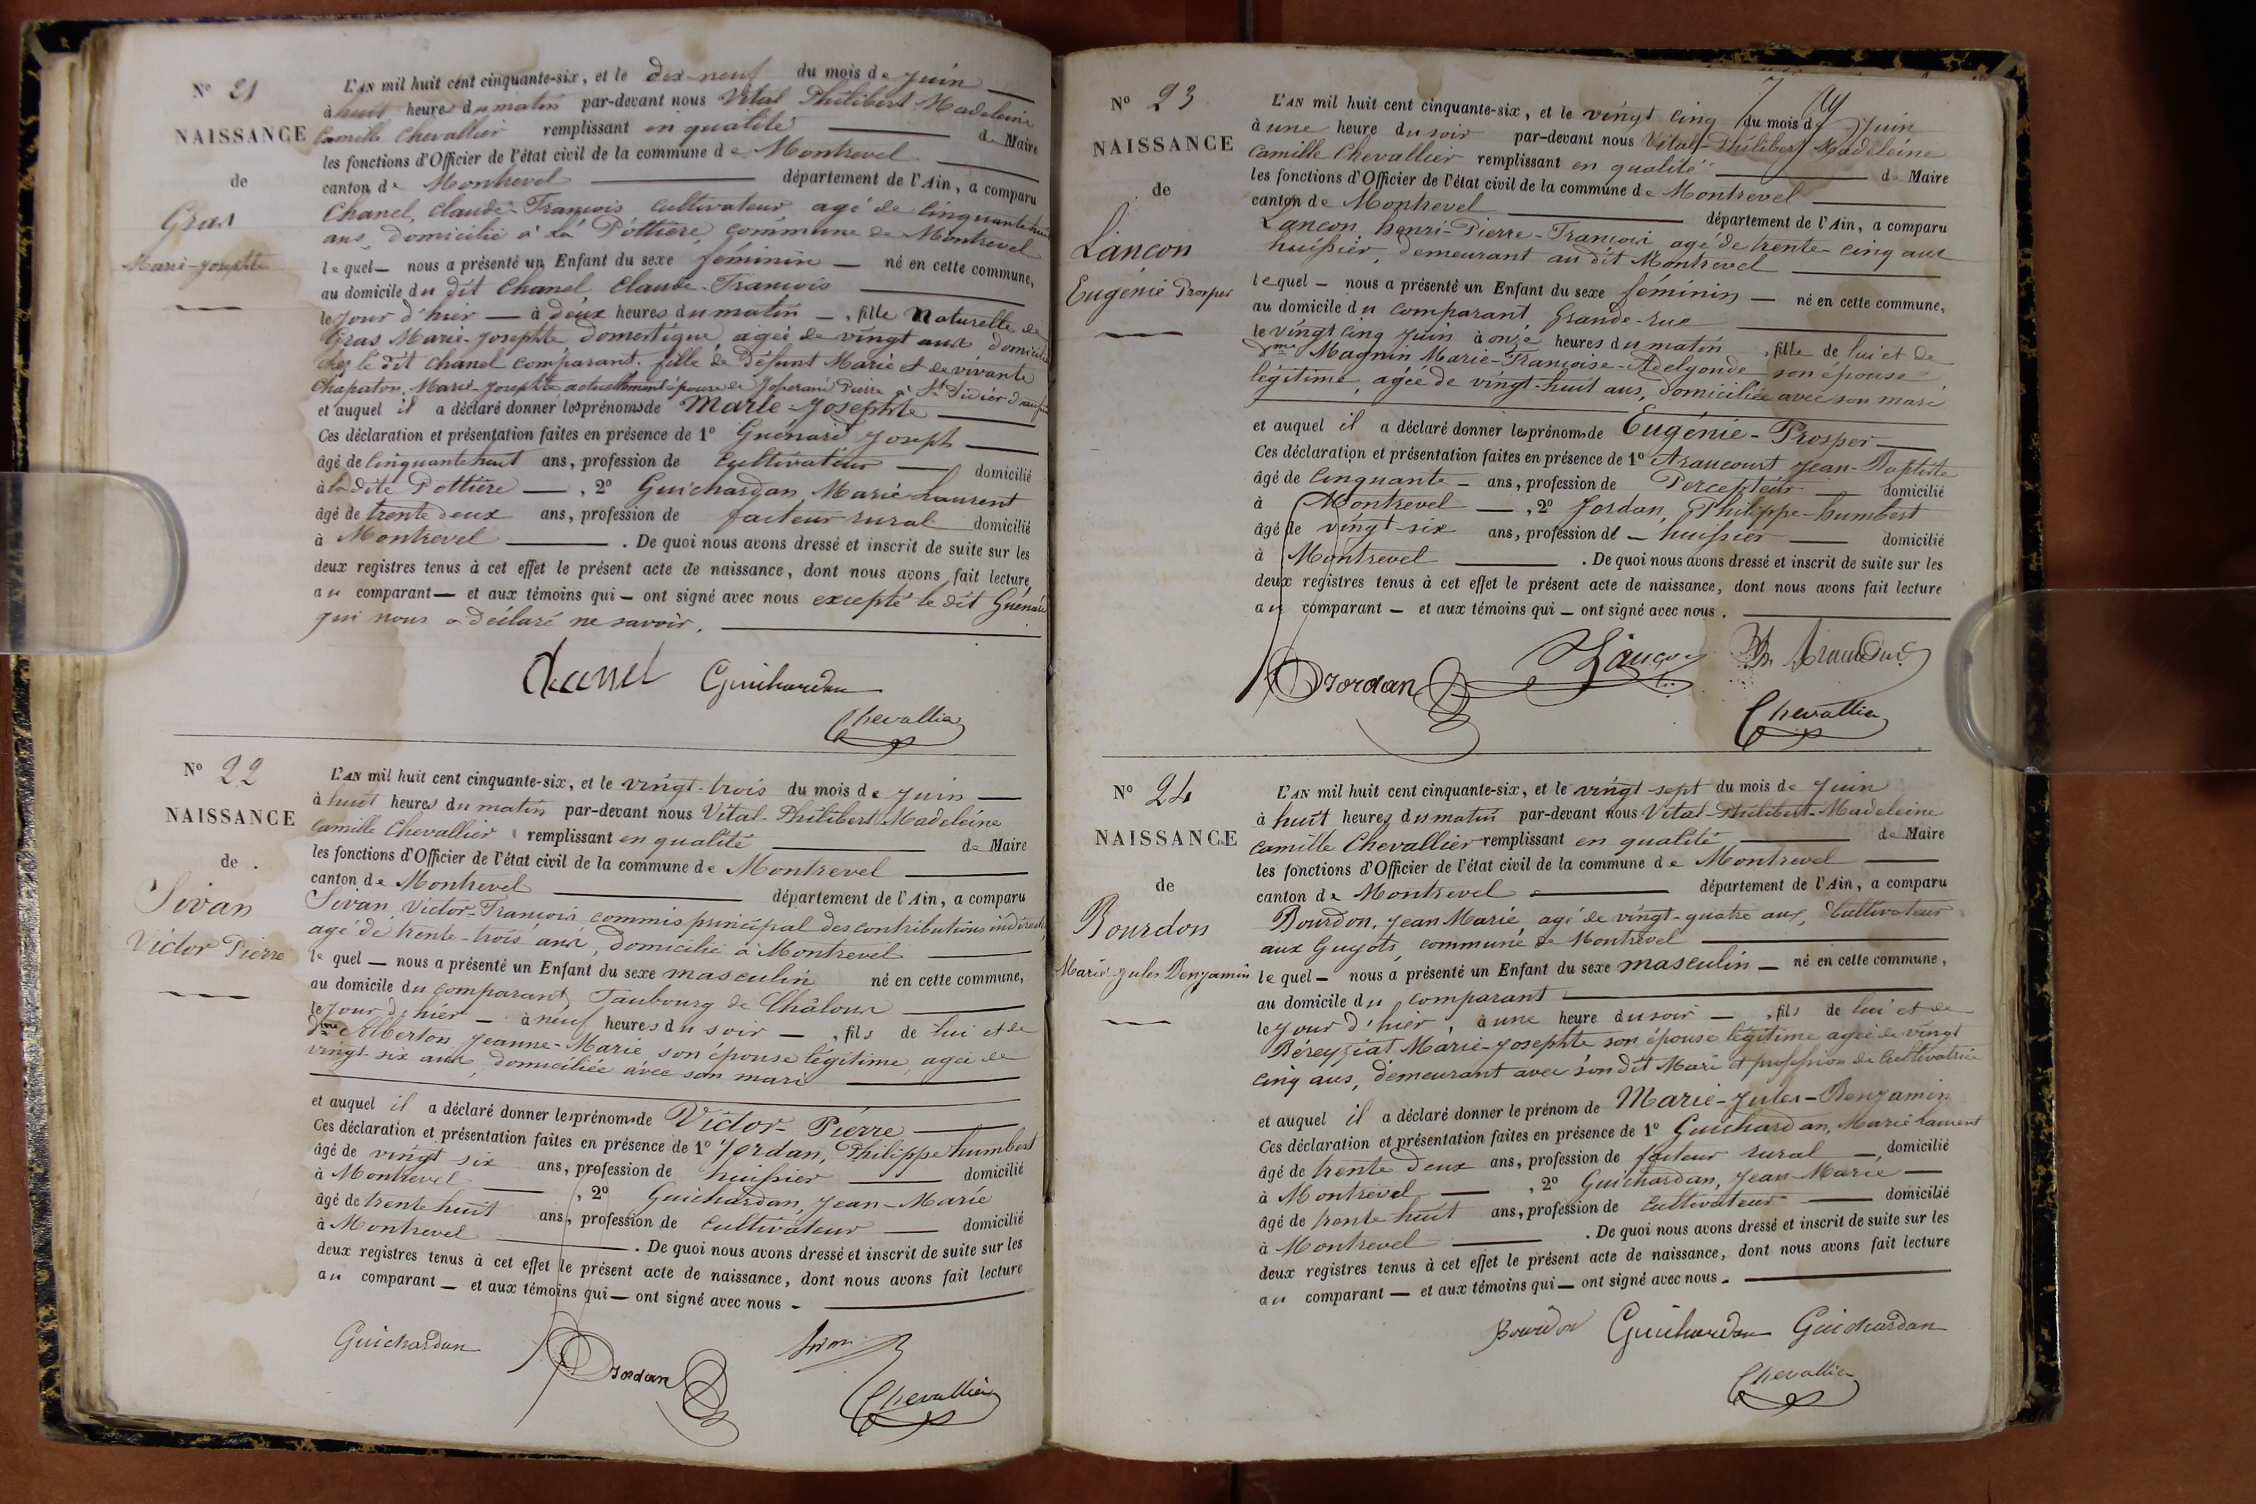 N° 21
NAISSANCE
de
Gras
Marie-Josephte
L'AN mil huit cent cinquante-six, et le dix-neuf du mois de Juin
à huit heures du matin par-devant nous Vital Philibert Madeleine
Camille Chevallier remplissant en qualité de Maire
les fonctions d'Officier de l'état civil de la commune de Montrevel
canton de Montrevel département de l'Ain, a comparu
Chanel, Claude-François cultivateur agé de Cinquante huit
ans, domicilié à la Pottière, commune de Montrevel
lequel nous a présenté un Enfant du sexe féminin né en cette commune,
au domicile du dit Chanel Claude-François
le jour d'hier à deux heures du matin, fille Naturelle de
Gras Marie-Josephte domestique, agée de vingt ans domiciliée
chez le dit Chanel comparant, fille de défunt Marie et de vivante
Chapaton Marie-Josephte actuellement épouse de Pierre à St Didier
et auquel il a déclaré donner les prénoms de Marie-Josephte
Ces déclaration et présentation faites en présence de 1° Guénard Joseph
âgé de Cinquante huit ans, profession de Cultivateur domicilié
à la dite Pottière, 2° Guichardan, Marie-Laurent
âgé de trente deux ans, profession de facteur rural domicilié
à Montrevel. De quoi nous avons dressé et inscrit de suite sur les
deux registres tenus à cet effet le présent acte de naissance, dont nous avons fait lecture
au comparant et aux témoins qui ont signé avec nous excepté le dit Guénard
qui nous a déclaré ne savoir.
Chanel Guichardan
Chevallier
N° 22
NAISSANCE
de
Sivan
Victor Pierre
L'AN mil huit cent cinquante-six, et le vingt-trois du mois de Juin
à huit heures du matin par-devant nous Vital-Philibert Madeleine
Camille Chevallier remplissant en qualité de Maire
les fonctions d'Officier de l'état civil de la commune de Montrevel
canton de Montrevel département de l'Ain, a comparu
Sivan, Victor-François commis principal des contributions indirectes
agé de trente-trois ans, domicilié à Montrevel
lequel nous a présenté un Enfant du sexe masculin né en cette commune,
au domicile du comparant Faubourg de Châlons
le jour d'hier à neuf heures du soir, fils de lui et de
dme Alberton Jeanne-Marie, son épouse légitime, agée de
vingt-six ans, domiciliée avec son mari
et auquel il a déclaré donner les prénoms de Victor-Pierre
Ces déclaration et présentation faites en présence de 1° Jordan, Philippe humbert
âgé de vingt six ans, profession de huissier domicilié
à Montrevel, 2° Guichardan, Jean-Marie
âgé de trente huit ans, profession de Cultivateur domicilié
à Montrevel. De quoi nous avons dressé et inscrit de suite sur les
deux registres tenus à cet effet le présent acte de naissance, dont nous avons fait lecture
au comparant et aux témoins qui ont signé avec nous
Guichardan Jordan Sivan
Chevallier
N° 23
NAISSANCE
de
Lançon
Eugénie Prosper
L'AN mil huit cent cinquante-six, et le vingt cinq du mois de Juin
à une heure du soir par-devant nous Vital-Philibert Madeleine
Camille Chevallier remplissant en qualité de Maire
les fonctions d'Officier de l'état civil de la commune de Montrevel
canton de Montrevel département de l'Ain, a comparu
Lançon, henri-Pierre-François agé de trente-cinq ans
huissier, demeurant au dit Montrevel
lequel nous a présenté un Enfant du sexe féminin né en cette commune,
au domicile du comparant Grande-rue
le vingt cinq Juin à onze heures du matin, fille de lui et de
dme Magnin Marie-Françoise-Adelgonde son épouse
légitime, agée de vingt-huit ans, domiciliée avec son mari
et auquel il a déclaré donner les prénoms de Eugénie-Prosper
Ces déclaration et présentation faites en présence de 1° Araucourt Jean-Baptiste
âgé de Cinquante ans, profession de Percepteur domicilié
à Montrevel, 2° Jordan, Philippe-humbert
âgé de vingt-six ans, profession de huissier domicilié
à Montrevel. De quoi nous avons dressé et inscrit de suite sur les
deux registres tenus à cet effet le présent acte de naissance, dont nous avons fait lecture
au comparant et aux témoins qui ont signé avec nous.
Jordan Lançon
Chevallier
N° 24
NAISSANCE
de
Bourdon
Marie Jules Benjamin
L'AN mil huit cent cinquante-six, et le vingt-sept du mois de Juin
à huit heures du matin par-devant nous Vital-Philibert-Madeleine
Camille Chevallier remplissant en qualité de Maire
les fonctions d'Officier de l'état civil de la commune de Montrevel
canton de Montrevel département de l'Ain, a comparu
Bourdon, Jean Marie, agé de vingt-quatre ans, Cultivateur
aux Guyots, commune de Montrevel
lequel nous a présenté un Enfant du sexe masculin né en cette commune,
au domicile du comparant
le jour d'hier, à une heure du soir, fils de lui et de
Béreyziat Marie-Josephte son épouse légitime agée de vingt
cinq ans, demeurant avec son dit Mari et profession de Cultivatrice
et auquel il a déclaré donner le prénom de Marie-Jules-Benjamin
Ces déclaration et présentation faites en présence de 1° Guichardan, Marie Laurent
âgé de trente deux ans, profession de facteur rural, domicilié
à Montrevel, 2° Guichardan, Jean-Marie
âgé de trente huit ans, profession de Cultivateur domicilié
à Montrevel. De quoi nous avons dressé et inscrit de suite sur les
deux registres tenus à cet effet le présent acte de naissance, dont nous avons fait lecture
au comparant et aux témoins qui ont signé avec nous
Bourdon Guichardan Guichardan
Chevallier